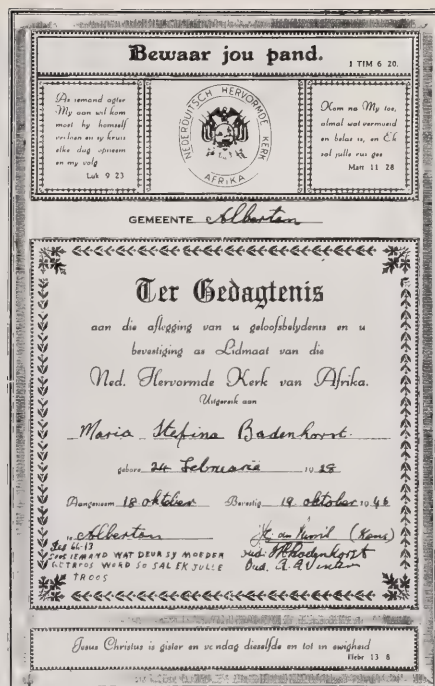 Bewaar jou pand.
1 TIM 6 20.
As iemand agter
My aan wil kom
moet hy homself
verloën en sy kruis
elke dag opneem
en my volg
Luk 9 23
NEDERDUITSCH HERVORMDE KERK
AFRIKA
Kom na My toe,
almal wat vermoeid
en belas is, en Ek
sal julle rus gee
Matt 11 28
GEMEENTE Alberton
Ter Gedagtenis
aan die aflegging van u geloofsbelydenis en u
bevestiging as Lidmaat van die
Ned. Hervormde Kerk van Afrika.
Uitgereik aan
Maria Stefina Badenhorst.
gebore 24 Februarie 1928
Aangeneem 18 oktober Bevestig 19 oktober 1946
te Alberton (Kons)
Jes 66-13 Badenhorst
SOOS IEMAND WAT DEUR SY MOEDER
GETROOS WORD SO SAL EK JULLE Oud.
TROOS
Jesus Christus is gister en vandag dieselfde en tot in ewigheid
Hebr 13 8